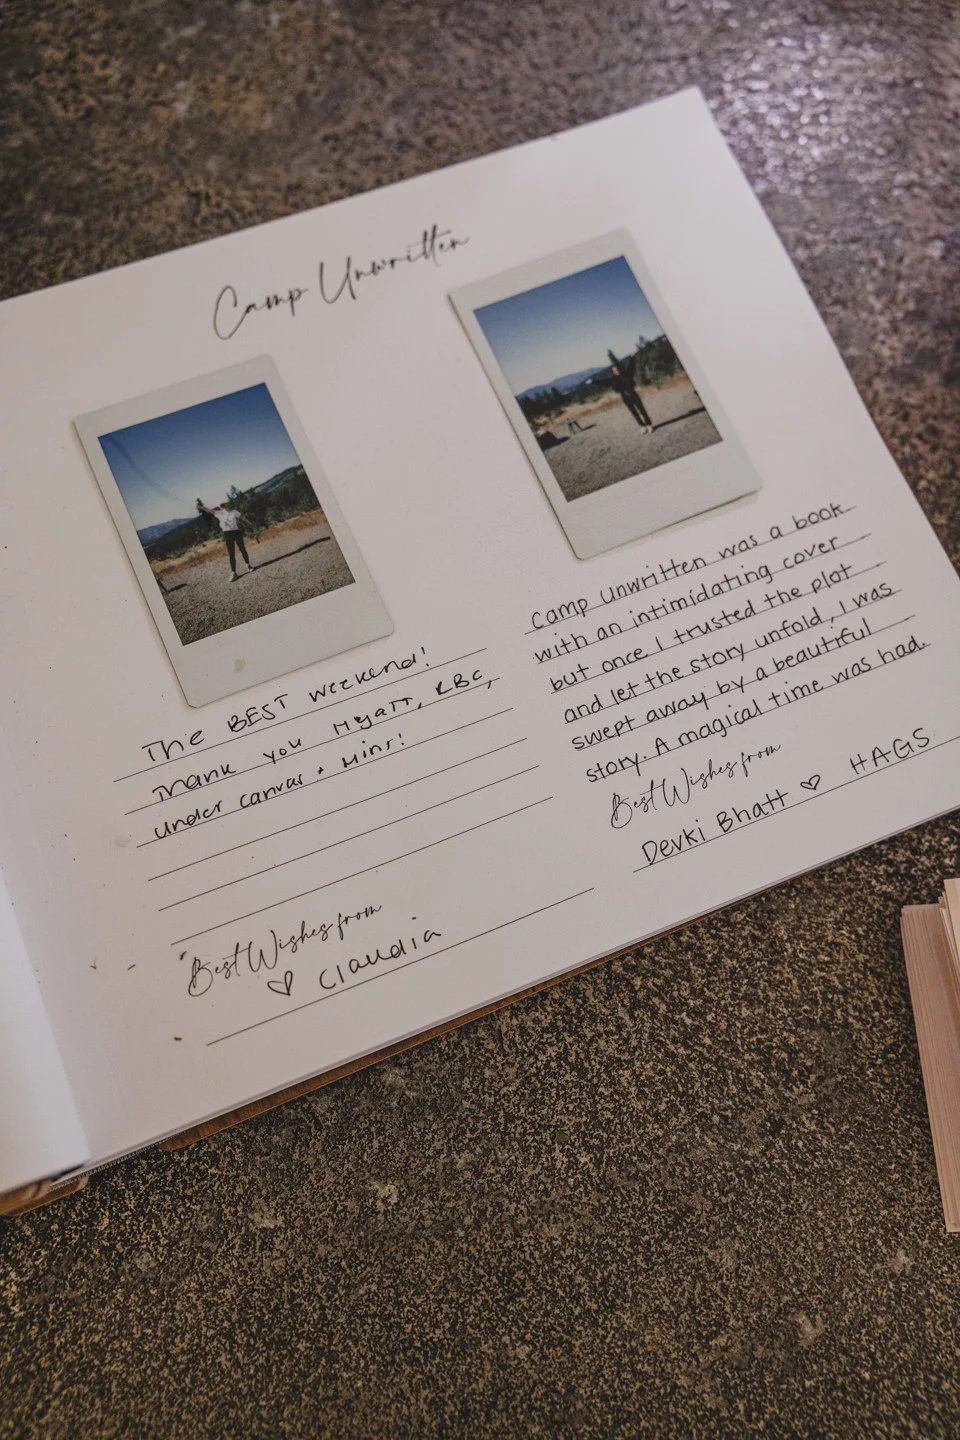 Camp Unwritten
The BEST weekend!
Thank you Hyatt, RBC,
under canvas + Mins!
Best Wishes from
♡ Claudia
Camp Unwritten was a book
with an intimidating cover
but once I trusted the plot
and let the story unfold, I was
swept away by a beautiful
story. A magical time was had.
Best Wishes from
Devki Bhatt ♡ HAGS